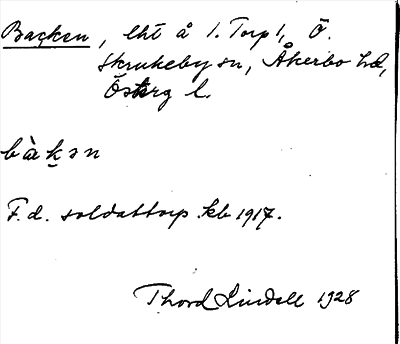 Backen, lht å 1. Torp 1, Ö.
Skrukeby sn, Åkerbo hd,
Österg l.
bàḵən
F.d. soldattorp kb 1917.
Thord Lindell 1928